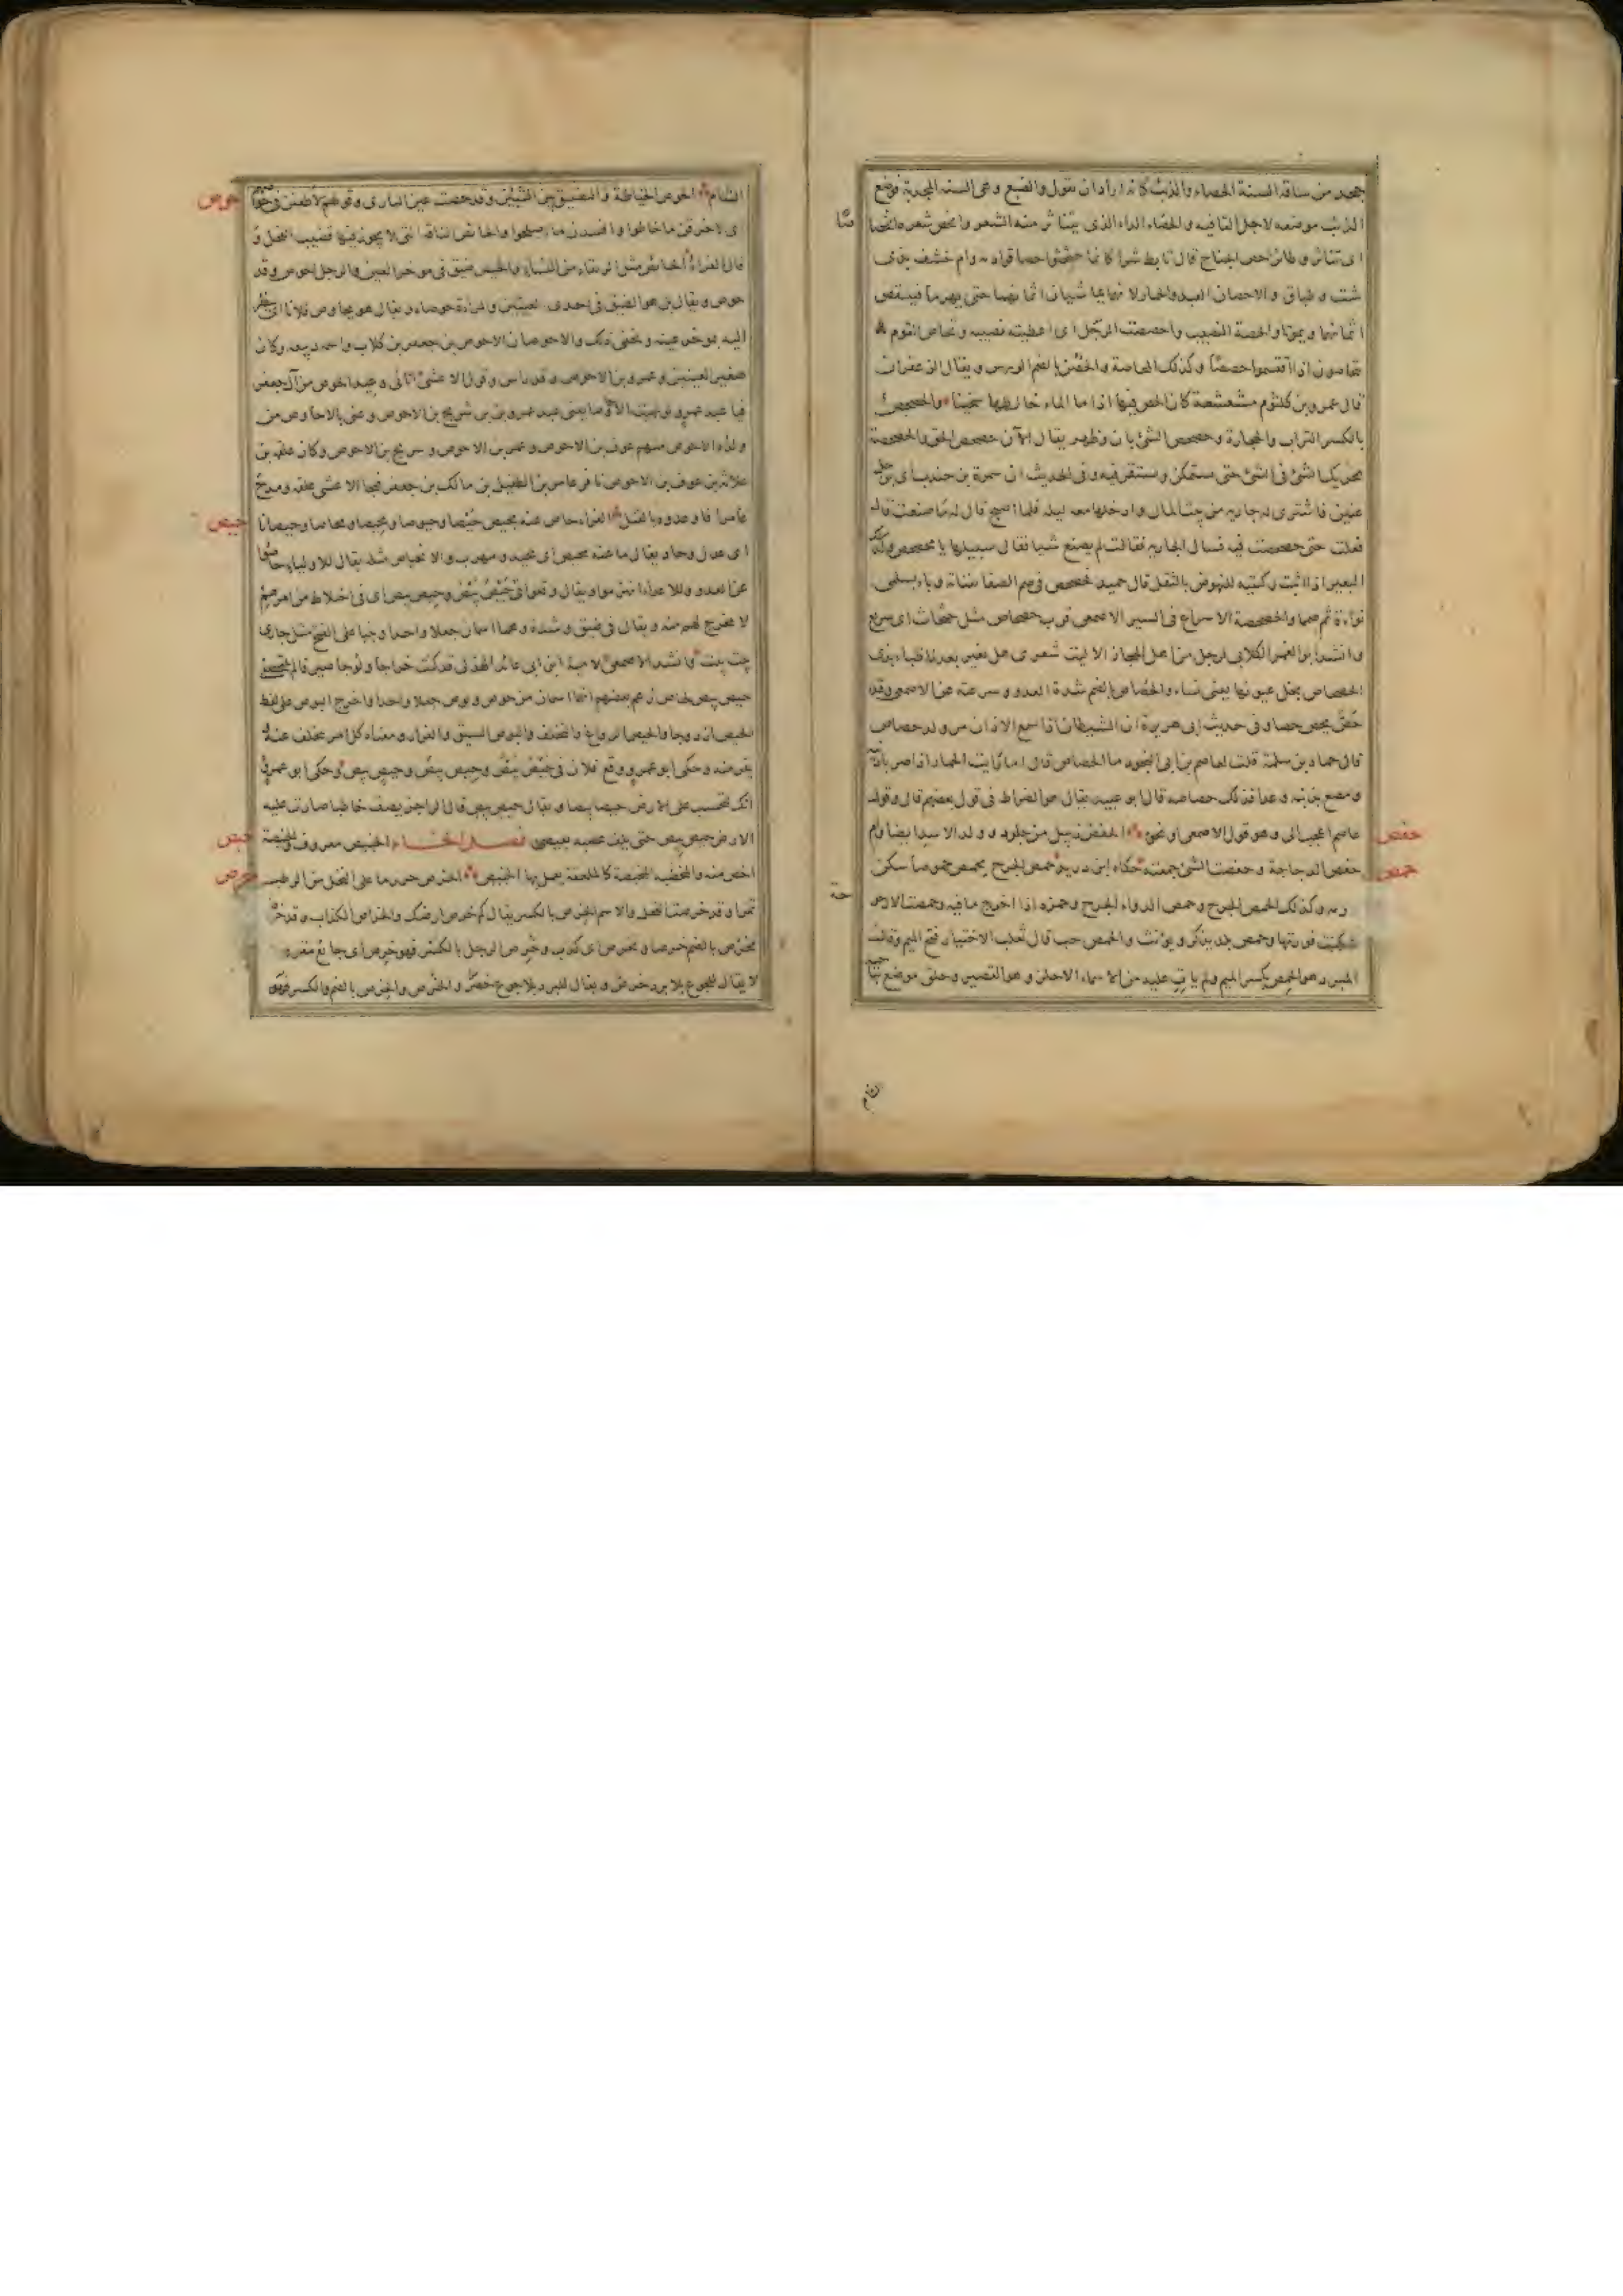 جحد من ساقه السنة الحصاء والذئب كانه اراد ان يقول والضبع وهى السنه المجدبة فوضع
الذئب موضعه لاجل القافيه والحصاء الداء الذى يتناثر منه الشعر وانحص شعره انحصا
صًا
اى تناثر وطائر احص الجناح قال تابط شرا كانما حثحثوا حصا قوادمه وام خشف بذى
شث وطباق والاحصان العبد والحمار لانهما يماشيان اثمانهما حتى يهرما فينتقص
اثمانهما ويموتا والحصة النصيب واحصصت الرجل اى اعطيته نصيبه وتحاص القوم
يتحاصون اذا اقتسموا حصصًا وكذلك المحاصة والحص بالضم الورس ويقال الزعفران
قال عمرو بن كلثوم مشعشعة كان الحص فيها اذا ما الماء خالطها سخينا والحصحص
بالكسر التراب والحجارة وحصحص الشئ بان وظهر يقال الآن حصحص الحق والحصحصة
تحريك الشئ فى الشئ حتى يستمكن ويستقر فيه وفى الحديث ان سمرة بن جندب اى برجل
عنين فاشترى له جاريه من بيت المال وادخلها معه ليله فلما اصبح قال له ما صنعت قال
فعلت حتى حصحصت فيه فسال الجاريه فقالت لم يصنع شيا فقال سبيلها يا محصحص وكذلك
البعير اذا اثبت ركبتيه للنهوض بالثقل قال حميد فحصحص فى صم الصفا ثفناته وناء بسلمى
نوأة ثم صمما والحصحصة الاسراع فى السير الاصمعى قرب حصحاص مثل حثحاث اى سريع
وانشد ابو الغمر الكلابى لرجل من اهل الحجاز الا ليت شعرى هل تغير بعدنا ظباء بذى
الحصحاص نجل عيونها يعنى نساء والحصاص بالضم شدة العدو وسرعته عن الاصمعى وقد
حصّ يحص حصا وفى حديث ابى هريرة ان الشيطان اذا سمع الاذان مر وله حصاص
قال حماد بن سلمة قلت لعاصم بن ابى النجود ما الحصاص قال اما رايت الحمار اذا صر باذنيه
ومصع بذنبه وعدا فذلك حصاصه قال ابو عبيد يقال هو الضراط فى قول بعضهم قال وقول
عاصم اعجب الى وهو قول الاصمعى او نحوه الحفص زبيل من جلود وولد الاسد ايضا وام
حفص
حفص الدجاجة وحفصت الشئ جمعته حكاه ابن دريد حمص الجرح يحمص حموصاً سكن
حمص
ورمه وكذلك انحمص الجرح وحمص الدواء الجرح وحمزه اذا اخرج ما فيه وحمصت الارجو
حة
سكنت فورتها وحمص بلد يذكر ويؤنث والحمص حب قال ثعلب الاختيار فتح الميم وقال
المبرد هو الحمص بكسر الميم ولم يات عليه من الاسماء الا حلز وهو القصير وجلق موضع بناحية
الشام
الشام الحوص الخياطة والتضييق بين الشيئين وقد حصت عين البازى وقولهم لاطعنن فى حوصهم
حوص
اى لاخرقن ما خاطوا وافسدن ما اصلحوا والحائص الناقة التى لا يجوز فيها قضيب الفحل و
قال الفراء الحائص مثل الرتقاء من النساء والحوص ضيق فى موخر العين والرجل احوص وقد
حوص ويقال بل هو الضيق فى احدى العينين والمراة حوصاء ويقال هو يحاوص فلانا اى ينظر
اليه بموخر عينه ويخفى ذلك والاحوصان الاحوص بن جعفر بن كلاب واسمه ربيعه وكان
صغير العينين وعمرو بن الاحوص وقد راس وقول الاعشى اتانى وعيد الحوص من آل جعفر
فيا عبد عمرو لو نهيت الاحاوصا يعنى عبد عمرو بن شريح بن الاحوص وعنى بالاحاوص من
ولده الاحوص منهم عوف بن الاحوص وعمرو بن الاحوص وشريح بن الاحوص وكان علقمه بن
علاثة بن عوف بن الاحوص نافر عامر بن الطفيل بن مالك بن جعفر فهجا الاعشى علقمه ومدح
عامرا فاوعدوه بالقتل الفراء حاص عنه يحيص حيصا وحيوصا ومحيصا ومحاصا وحيصانا
حيص
اى عدل وحاد يقال ما عنه محيص اى محيد ومهرب والانحياص مثله يقال للاولياء حاصوا
عن العدو وللاعداء انهزموا ويقال وقعوا فى حيص بيص وحيص بيص اى فى اختلاط من امرهم
لا مخرج لهم منه ويقال فى ضيق وشدة وهما اسمان جعلا واحدا وبنيا على الفتح مثل جارى
بيت بيت وانشد الاصمعى لامية ابن ابى عائذ الهذلى قد كنت خراجا ولوجا صيرفا لم تلتحصنى
حيص بيص لحاص زعم بعضهم انهما اسمان من حوص وبوص جعلا واحدا واخرج البوص على لفظ
الحيص ازدوجا والحيص الرواغ والتخلف والبوص السبق والفرار ومعناه كل امر يتخلف عنه
يفر منه وحكى ابو عمرو وقع فلان فى حيص بيص وحيص بيص وحيص بيص وحكى ابو عمرو
انك لتحسب على الارض حيصا بيصا ويقال حيص بيص قال الراجز يصف خاطبا صارت عليه
الارض حيص بيص حتى يلف عيصه بعيصى فصل الخاء الخبيص معروف والخبيصة
خبص
اخص منه والمخبصة كالملعقة يعمل بها الخبيص الخرص حزر ما على النخل من الرطب
خرص
تمرا وقد خرصت النخل والاسم الخرص بالكسر يقال كم خرص ارضك والخراص الكذاب وقد خرص
يخرص بالضم خرصا وتخرص اى كذب وخرص الرجل بالكسر فهو خرص اى جائع مقرور
لا يقال للجوع بلا برد خرص ويقال للبرد بلا جوع خصر والخرص والخرص بالضم والكسر